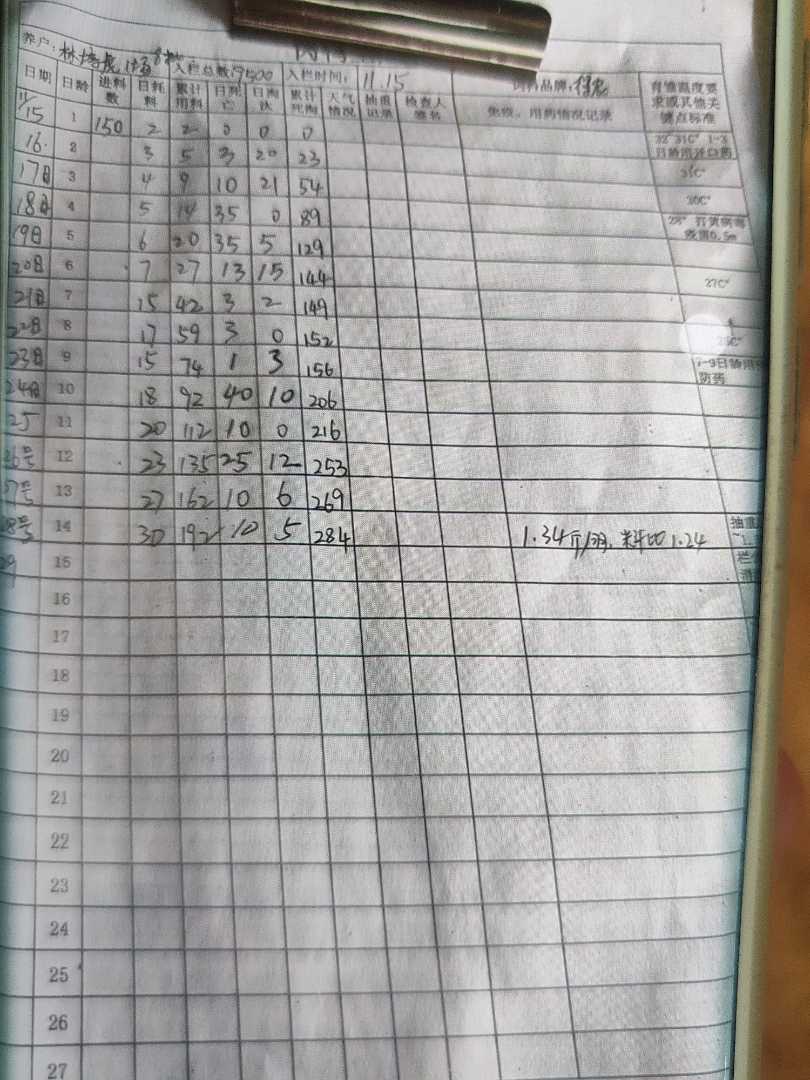 养户: 林 8 入栏总数: 9500 入栏时间: 11.15 饲料品牌:
日期 日龄 进料数 日耗料 累计用料 日死亡 日淘汰 累计死淘 天气情况 抽重记录 检查人签名 免疫、用药情况记录 育雏温度要求或其他关键点标准
11/15 1 150 2 2 0 0 0 32°-31C° 1-3日龄用开口药
16. 2 3 5 3 20 23 31C°
17日 3 4 9 10 21 54 30C°
18日 4 5 14 35 0 89
19日 5 6 20 35 5 129
20日 6 7 27 13 15 144 27C°
21日 7 15 42 3 2 149
22日 8 17 59 3 0 152
23日 9 15 74 1 3 156 7-9日龄用 防药
24日 10 18 92 40 10 206
25 11 20 112 10 0 216
26号 12 23 135 25 12 253
27号 13 27 162 10 6 269
28号 14 30 192 10 5 284 1.34斤/羽, 料比1.24 抽重
29 15
16
17
18
19
20
21
22
23
24
25
26
27